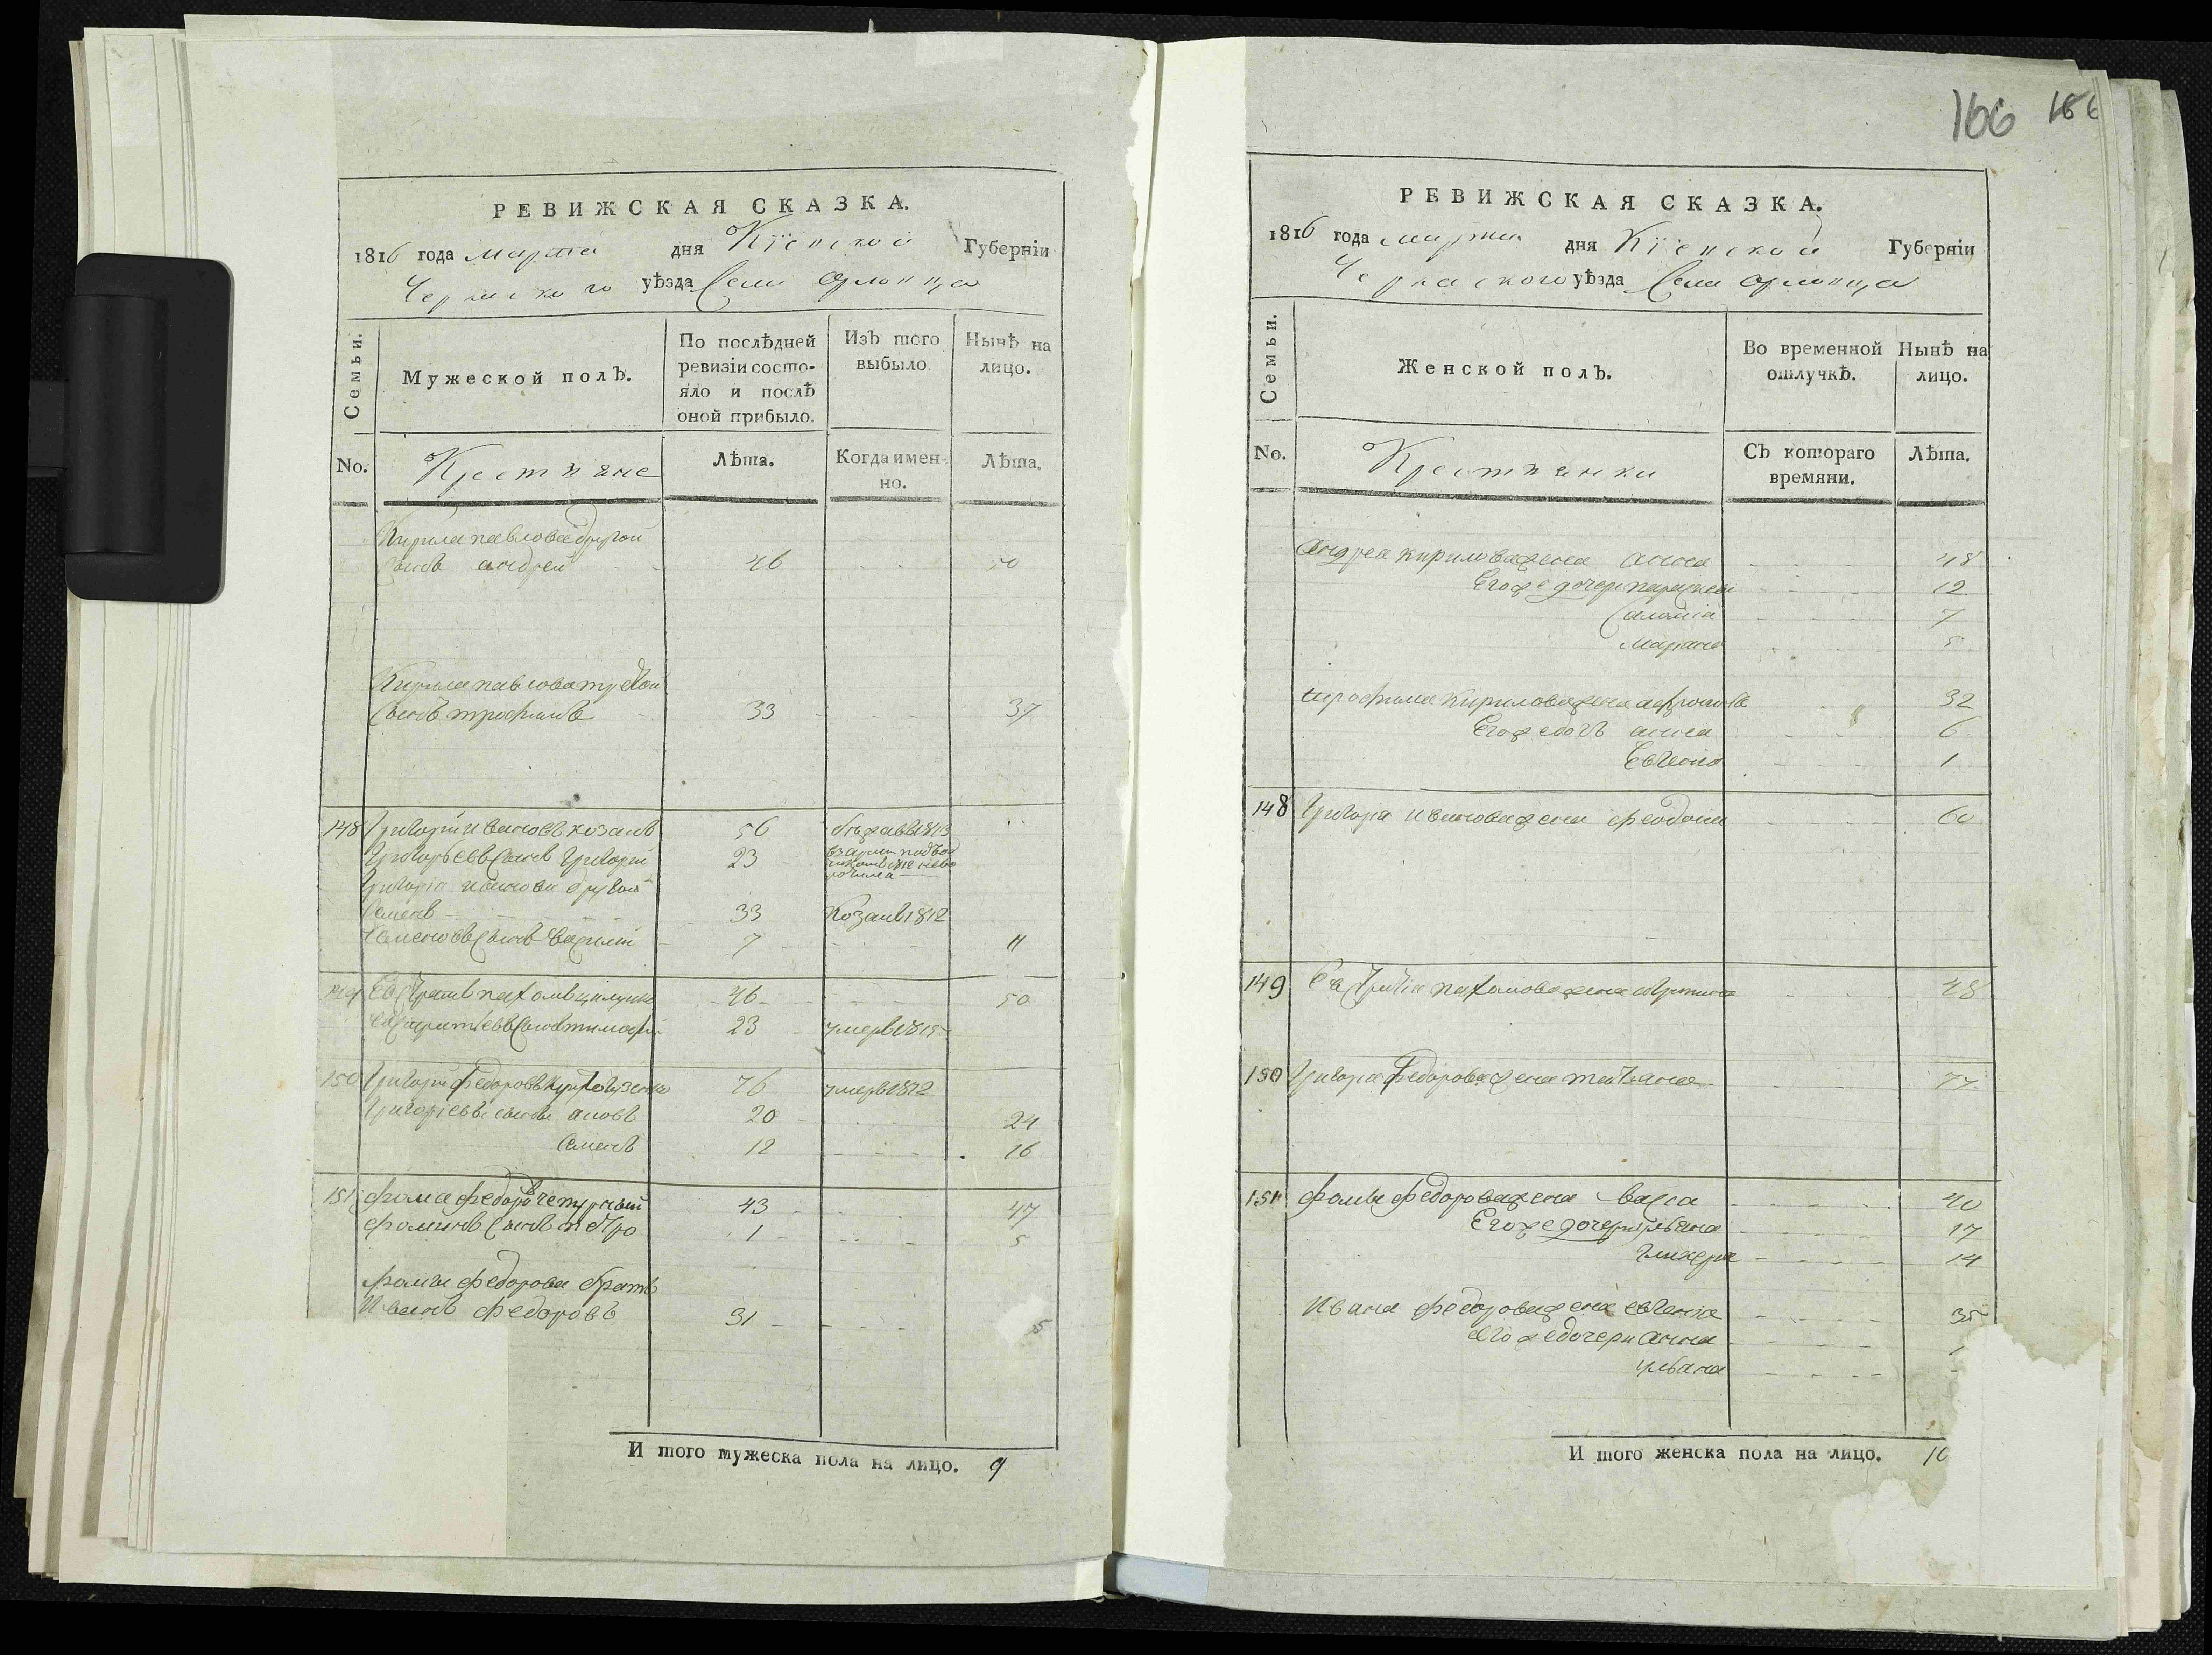 166 166
РЕВИЖСКАЯ СКАЗКА.
1816 года марта дня Кіевской Губерніи
Черкаского уѣзда Села Орловца
Семьи.
Мужеской полъ.
По послѣдней ревизіи состо-
яло и послѣ оной прибыло.
Изъ того выбыло.
Нынѣ на лицо.
No.
Крестьяне
Лѣта.
Когда имен-
но.
Лѣта.
Кирила павлова другой
Сынъ андрей 46 50
Кирила павлова третой
Сынъ трофимъ 33 37
148 Григорий ивановъ козакъ 56
Григорьевъ Сынъ Григорий 23
Григорія иванова другой
Семенъ 33 1812
Семеновъ Сынъ Василий 7 11
149 46 50
Сынъ тимофей 23 умеръ 1815
150 Григорий федоровъ 76 умеръ 1812
Григоріевы сыны 20 24
Семенъ 12 16
151 фома федоровъ 43 47
фоминъ Сынъ петро 1 5
фомы федорова братъ
Иванъ федоровъ 31 5
И того мужеска пола на лицо. 9
РЕВИЖСКАЯ СКАЗКА.
1816 года марта дня Кіевской Губерніи
Черкаского уѣзда Села Орловца
Семьи.
Женской полъ.
Во временной отлучкѣ.
Нынѣ на лицо.
No.
Крестьянки
Съ котораго времяни.
Лѣта.
андрея кирилова жена анна 48
Его же дочери параскева 12
Саломія 7
Марина 5
трофима Кирилова жена 32
Его же дочь анна 6
Евгения 1
148 Григория иванова жена феодосия 60
149 пахомова жена 48
150 Григория федорова жена татьяна 77
151 фомы федорова жена васса 40
Его же дочери ульяна 17
гликерия 14
Ивана федорова жена евгения 35
его же дочери анна
ульяна
И того женска пола на лицо. 1